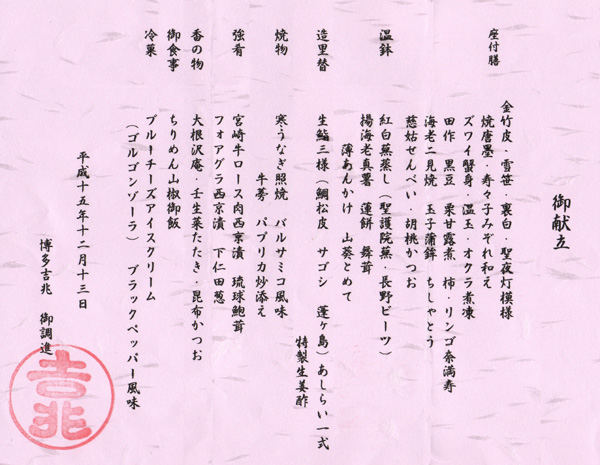 御献立
座付膳
金竹皮・雪笹・裏白・聖夜灯模様
焼唐墨・寿々子みぞれ和え
ズワイ蟹身・温玉・オクラ煮凍
田作・黒豆 栗甘露煮 柿・リンゴ奈満寿
海老二見焼 玉子蒲鉾 ちしゃとう
慈姑せんべい・胡桃かつお
温鉢
紅白蕪蒸し（聖護院蕪・長野ビーツ）
揚海老真薯 蓮餅 舞茸
薄あんかけ 山葵とめて
造里替
生鮨三様（鯛松皮 サゴシ 蓬ヶ島）あしらい一式
特製生姜酢
焼物
寒うなぎ照焼 バルサミコ風味
牛蒡 パプリカ炒添え
強肴
宮崎牛ロース肉西京漬 琉球鮑茸
フォアグラ西京漬 下仁田葱
香の物
大根沢庵・壬生菜たたき・昆布かつお
御食事
ちりめん山椒御飯
冷菓
ブルーチーズアイスクリーム
（ゴルゴンゾーラ） ブラックペッパー風味
平成十五年十二月十三日
博多吉兆 御調進
吉兆